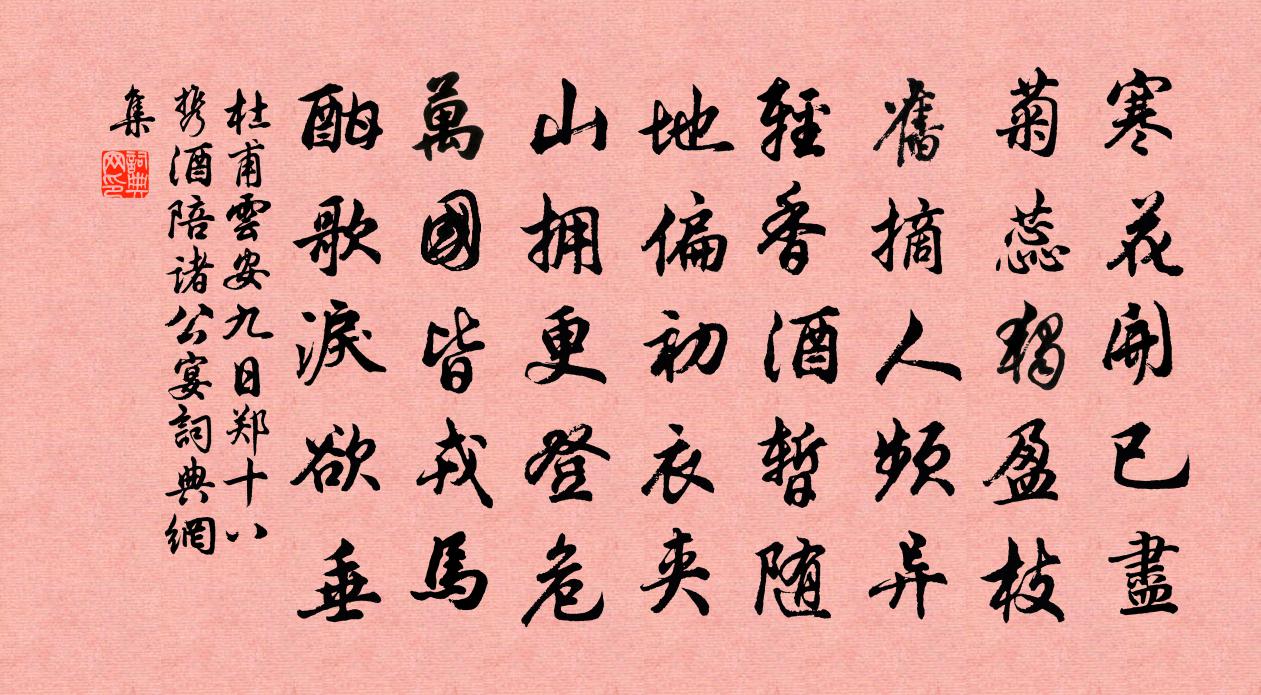 寒花開已盡
菊蕊獨盈枝
舊摘人頻异
輕香酒暫随
地偏初衣夹
山拥更登危
萬國皆戎馬
酣歌淚欲垂
杜甫雲安九日郑十八
携酒陪诸公宴詞典網
集
詞典网印